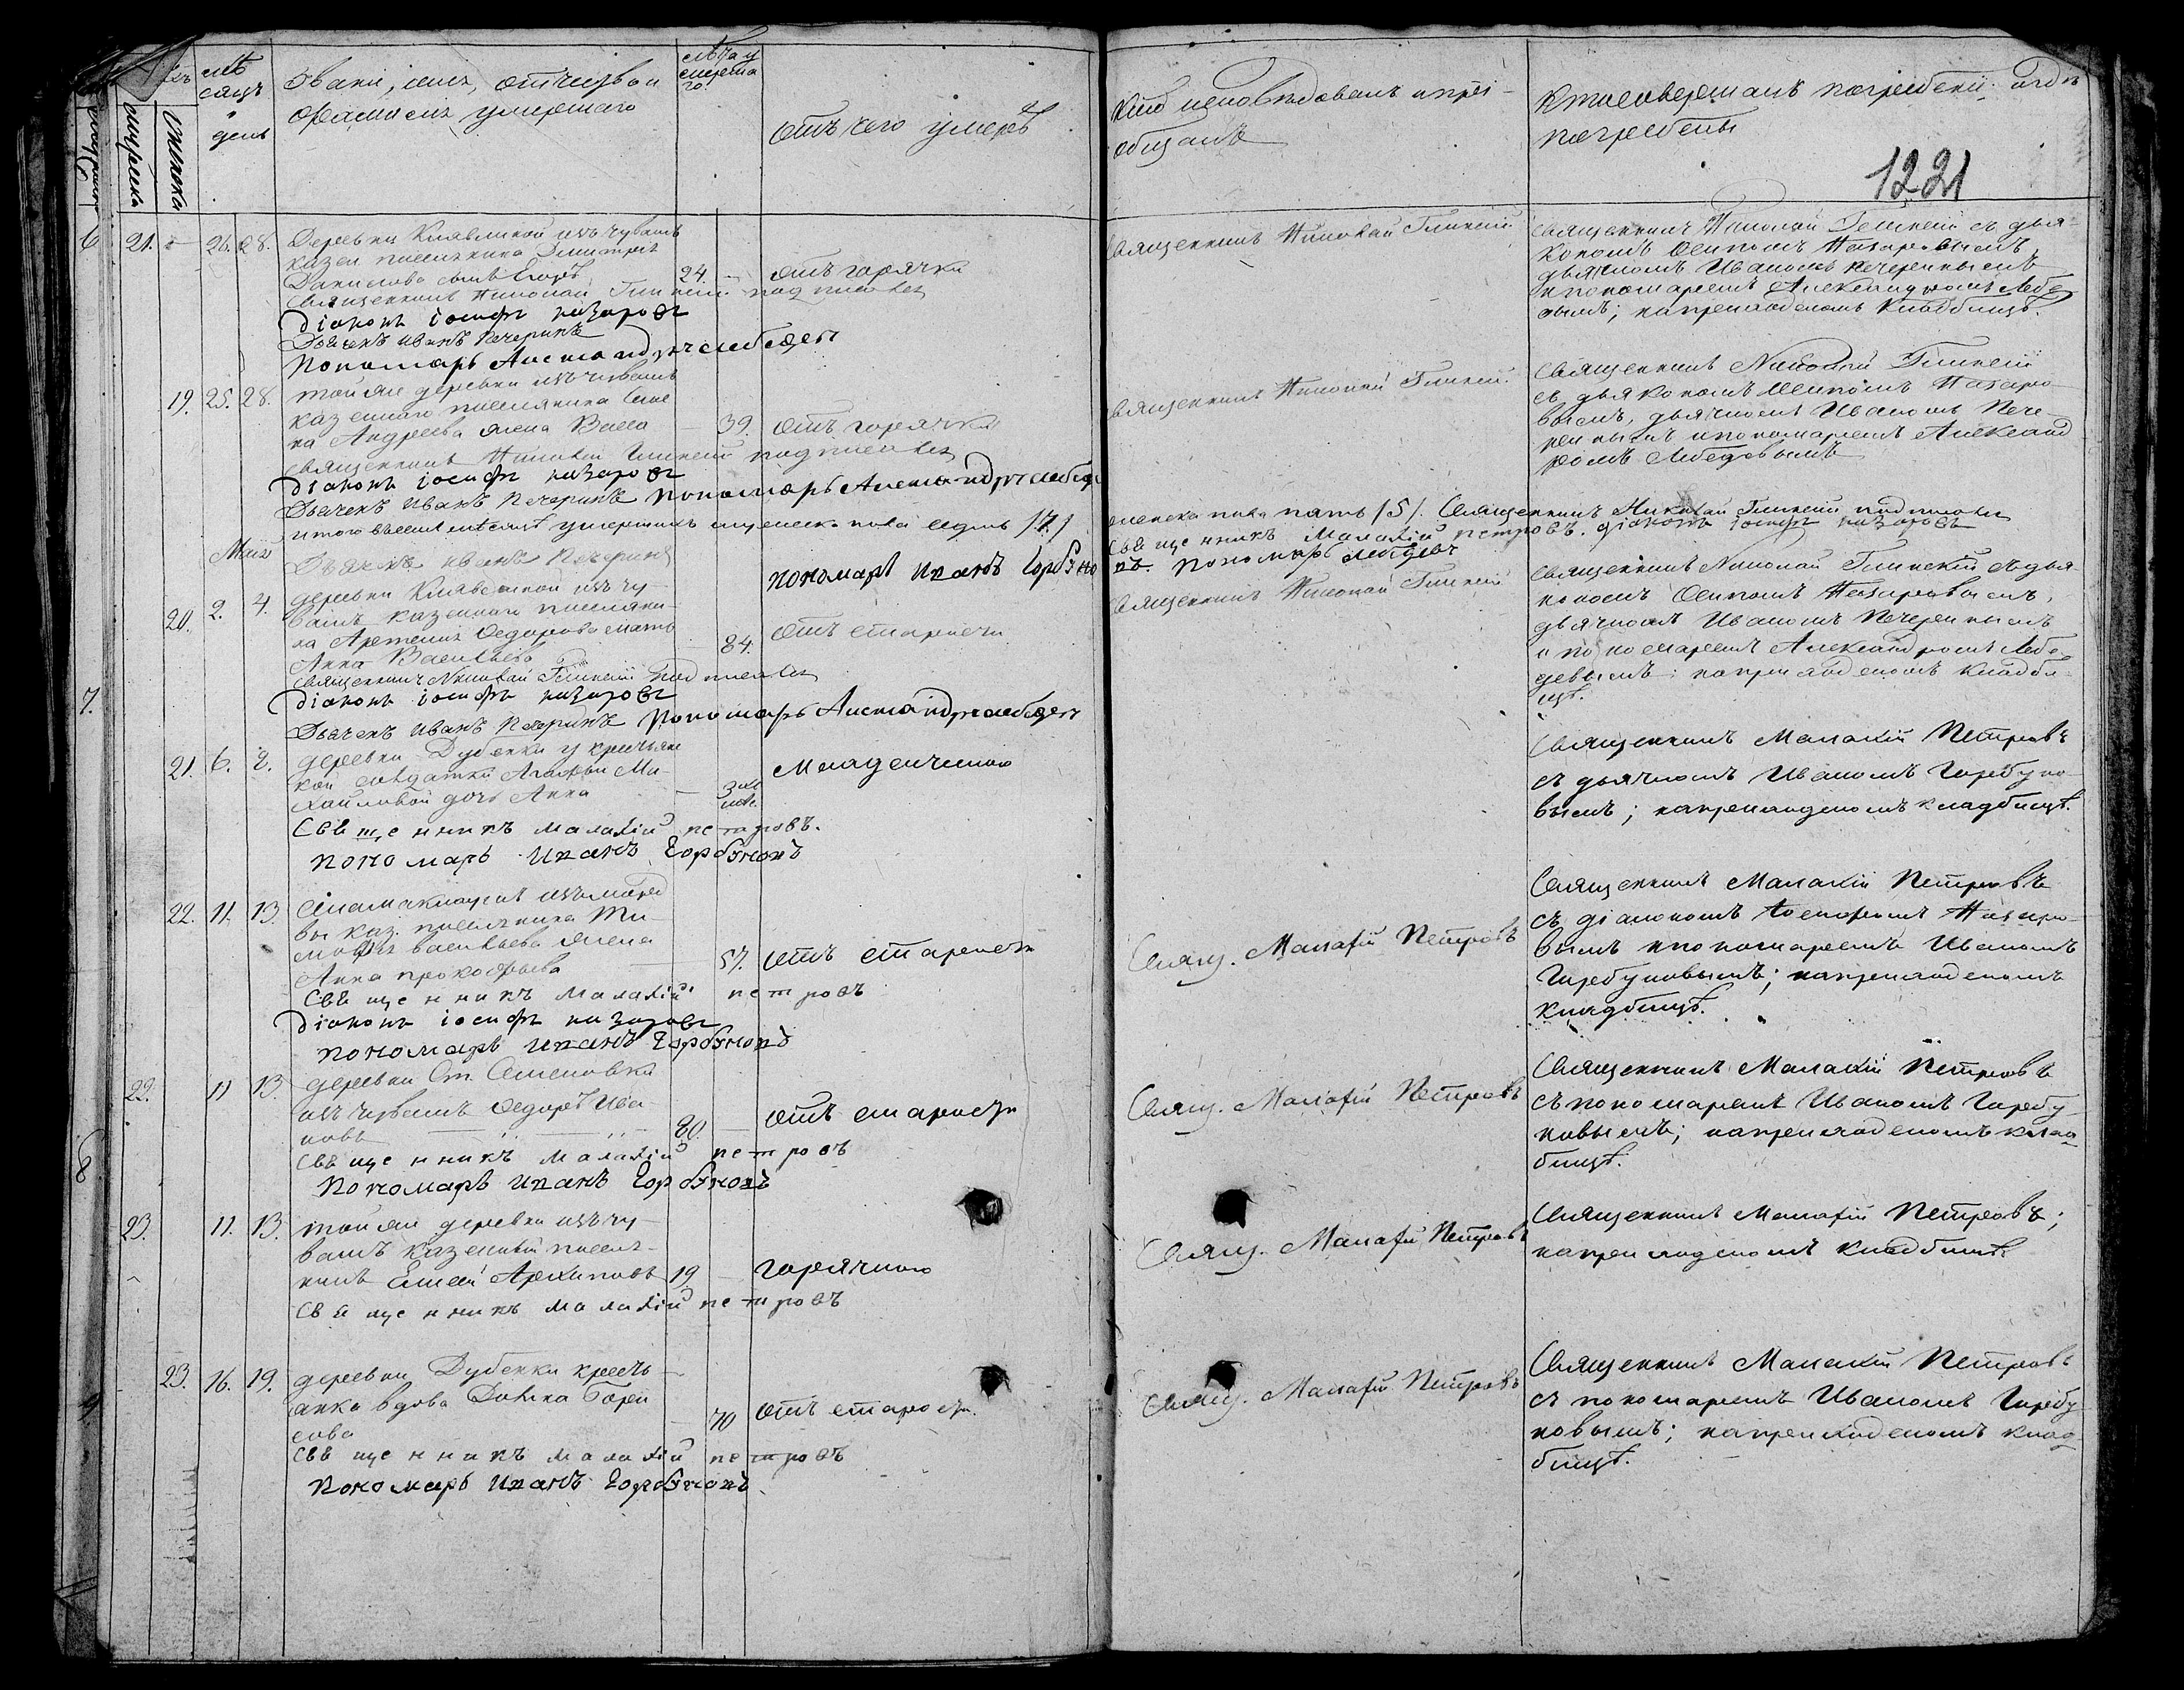 мѣсяцъ и день
Званіе, имя, отчество и
фамилія умершаго
лѣта умершаго
отъ чего умеръ
Кто исповѣдовалъ и прі-
общалъ
Кто совершалъ погребеніе и гдѣ
погребены
1221
6 21. 26. 28. Деревни Клявлиной изъ чувашъ
казен. поселянина Дмитрія
Данилова сынъ Егоръ 24. — отъ горячки
Священникъ Николай подписался
Діаконъ Іосифъ Назаровъ
Дьячекъ Иванъ Печеринъ
Пономарь Александръ Лебедевъ
Священникъ Николай
Священникъ Николай съ дья-
кономъ Осипомъ Назаровымъ,
дьячкомъ Иваномъ Печеринымъ
и пономаремъ Александромъ Лебе
вымъ; на приходскомъ кладбищѣ.
19. 25. 28. той же деревни изъ чувашъ
казеннаго поселянина Семе
на Андреева жена Васса — 39. отъ горячки
Священникъ Николай подписался
Діаконъ Іосифъ Назаровъ
Дьячекъ Иванъ Печеринъ Пономарь Александръ Лебедевъ
Священникъ Николай
Священникъ Николай
съ дьякономъ Осипомъ Назаро
вымъ, дьячкомъ Иваномъ Пече-
ринымъ и пономаремъ Александ
ромъ Лебедевымъ
итого въ семъ мѣсяцѣ умершихъ мужеска пола седмь /7/
женска пола пять /5/. Священникъ Николай подписался
Май Дьячекъ Иванъ Печеринъ
Пономарь Иванъ Горбуно
Священникъ Малахій Петровъ. Діаконъ Іосифъ Назаровъ
въ. Пономарь Лебедевъ
20. 2. 4. деревни Клявлиной изъ чу-
вашъ казеннаго поселяни-
на Артемія Федорова мать
Анна Васильева — 84. отъ старости
Священникъ Николай подписался
Діаконъ Іосифъ Назаровъ
7. Дьячекъ Иванъ Печеринъ Пономарь Александръ Лебедевъ
Священникъ Николай
Священникъ Николай съ дья-
кономъ Осипомъ Назаровымъ,
дьячкомъ Иваномъ Печеринымъ
и пономаремъ Александромъ Лебе
девымъ; на приходскомъ кладби
щѣ.
21. 6. 8. деревни Дубенки у крестьянс
кой солдатки Агафьи Ми-
хайловой дочь Анна — младенческою
Священникъ Малахій Петровъ.
Пономарь Иванъ Горбуновъ
Священникъ Малахій Петровъ
съ дьячкомъ Иваномъ Горбуно-
вымъ; на приходскомъ кладбищѣ.
22. 11. 13. изъ мордв
вы каз. поселянина Ти-
мофея Васильева жена
Анна Прокофьева — 57. отъ старости
Священникъ Малахій Петровъ
Діаконъ Іосифъ Назаровъ
Пономарь Иванъ Горбуновъ
Свящ. Малахій Петровъ
Священникъ Малахій Петровъ
съ діакономъ Іосифомъ Назаро-
вымъ и пономаремъ Иваномъ
Горбуновымъ; на приходскомъ
кладбищѣ.
22. 11 13. деревни Ст. Семеновки
изъ чувашъ Федоръ Ива
новъ 80. — отъ старости
8 Священникъ Малахій Петровъ
Пономарь Иванъ Горбуновъ
Свящ. Малахій Петровъ
Священникъ Малахій Петровъ
съ пономаремъ Иваномъ Горбу
новымъ; на приходскомъ клад
бищѣ.
23. 11. 13. той же деревни изъ чу-
вашъ казенный поселя-
нинъ Елисей Архиповъ 19. — горячкою
Священникъ Малахій Петровъ
Свящ. Малахій Петровъ
Священникъ Малахій Петровъ;
на приходскомъ кладбищѣ
23. 16. 19. деревни Дубенки кресть-
янка вдова Домна Бори
сова — 70 отъ старости.
Священникъ Малахій Петровъ
Пономарь Иванъ Горбуновъ
Свящ. Малахій Петровъ
Священникъ Малахій Петровъ
съ пономаремъ Иваномъ Горбу
новымъ; на приходскомъ клад
бищѣ.